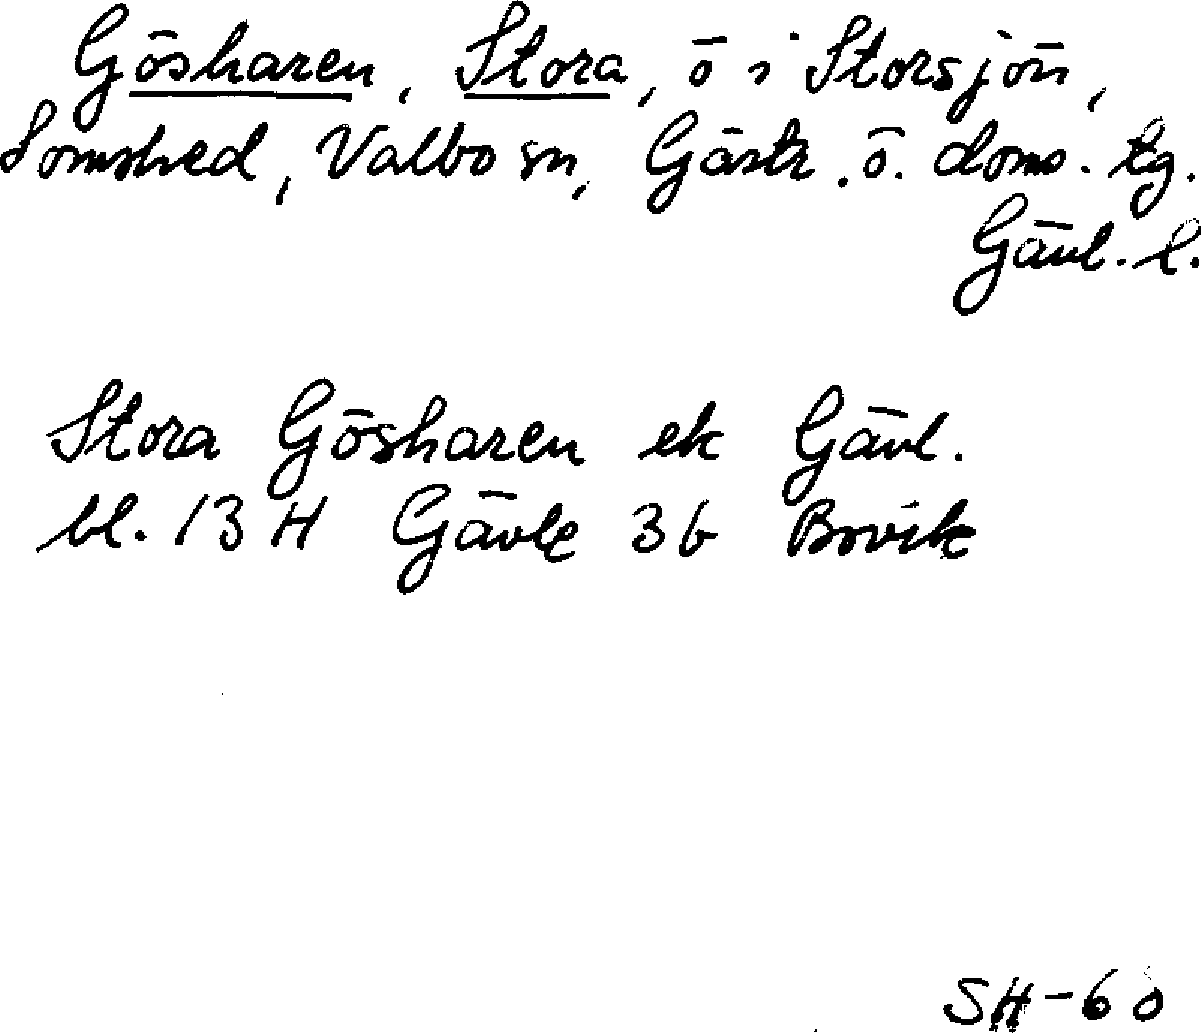 Gösharen, Stora, ö i Storsjön,
Tomshed, Valbo sn, Gästr. ö. doms. tg.
Gävl. l.
Stora Gösharen ek Gävl.
bl. 13 H Gävle 3b Bovik
SH-60